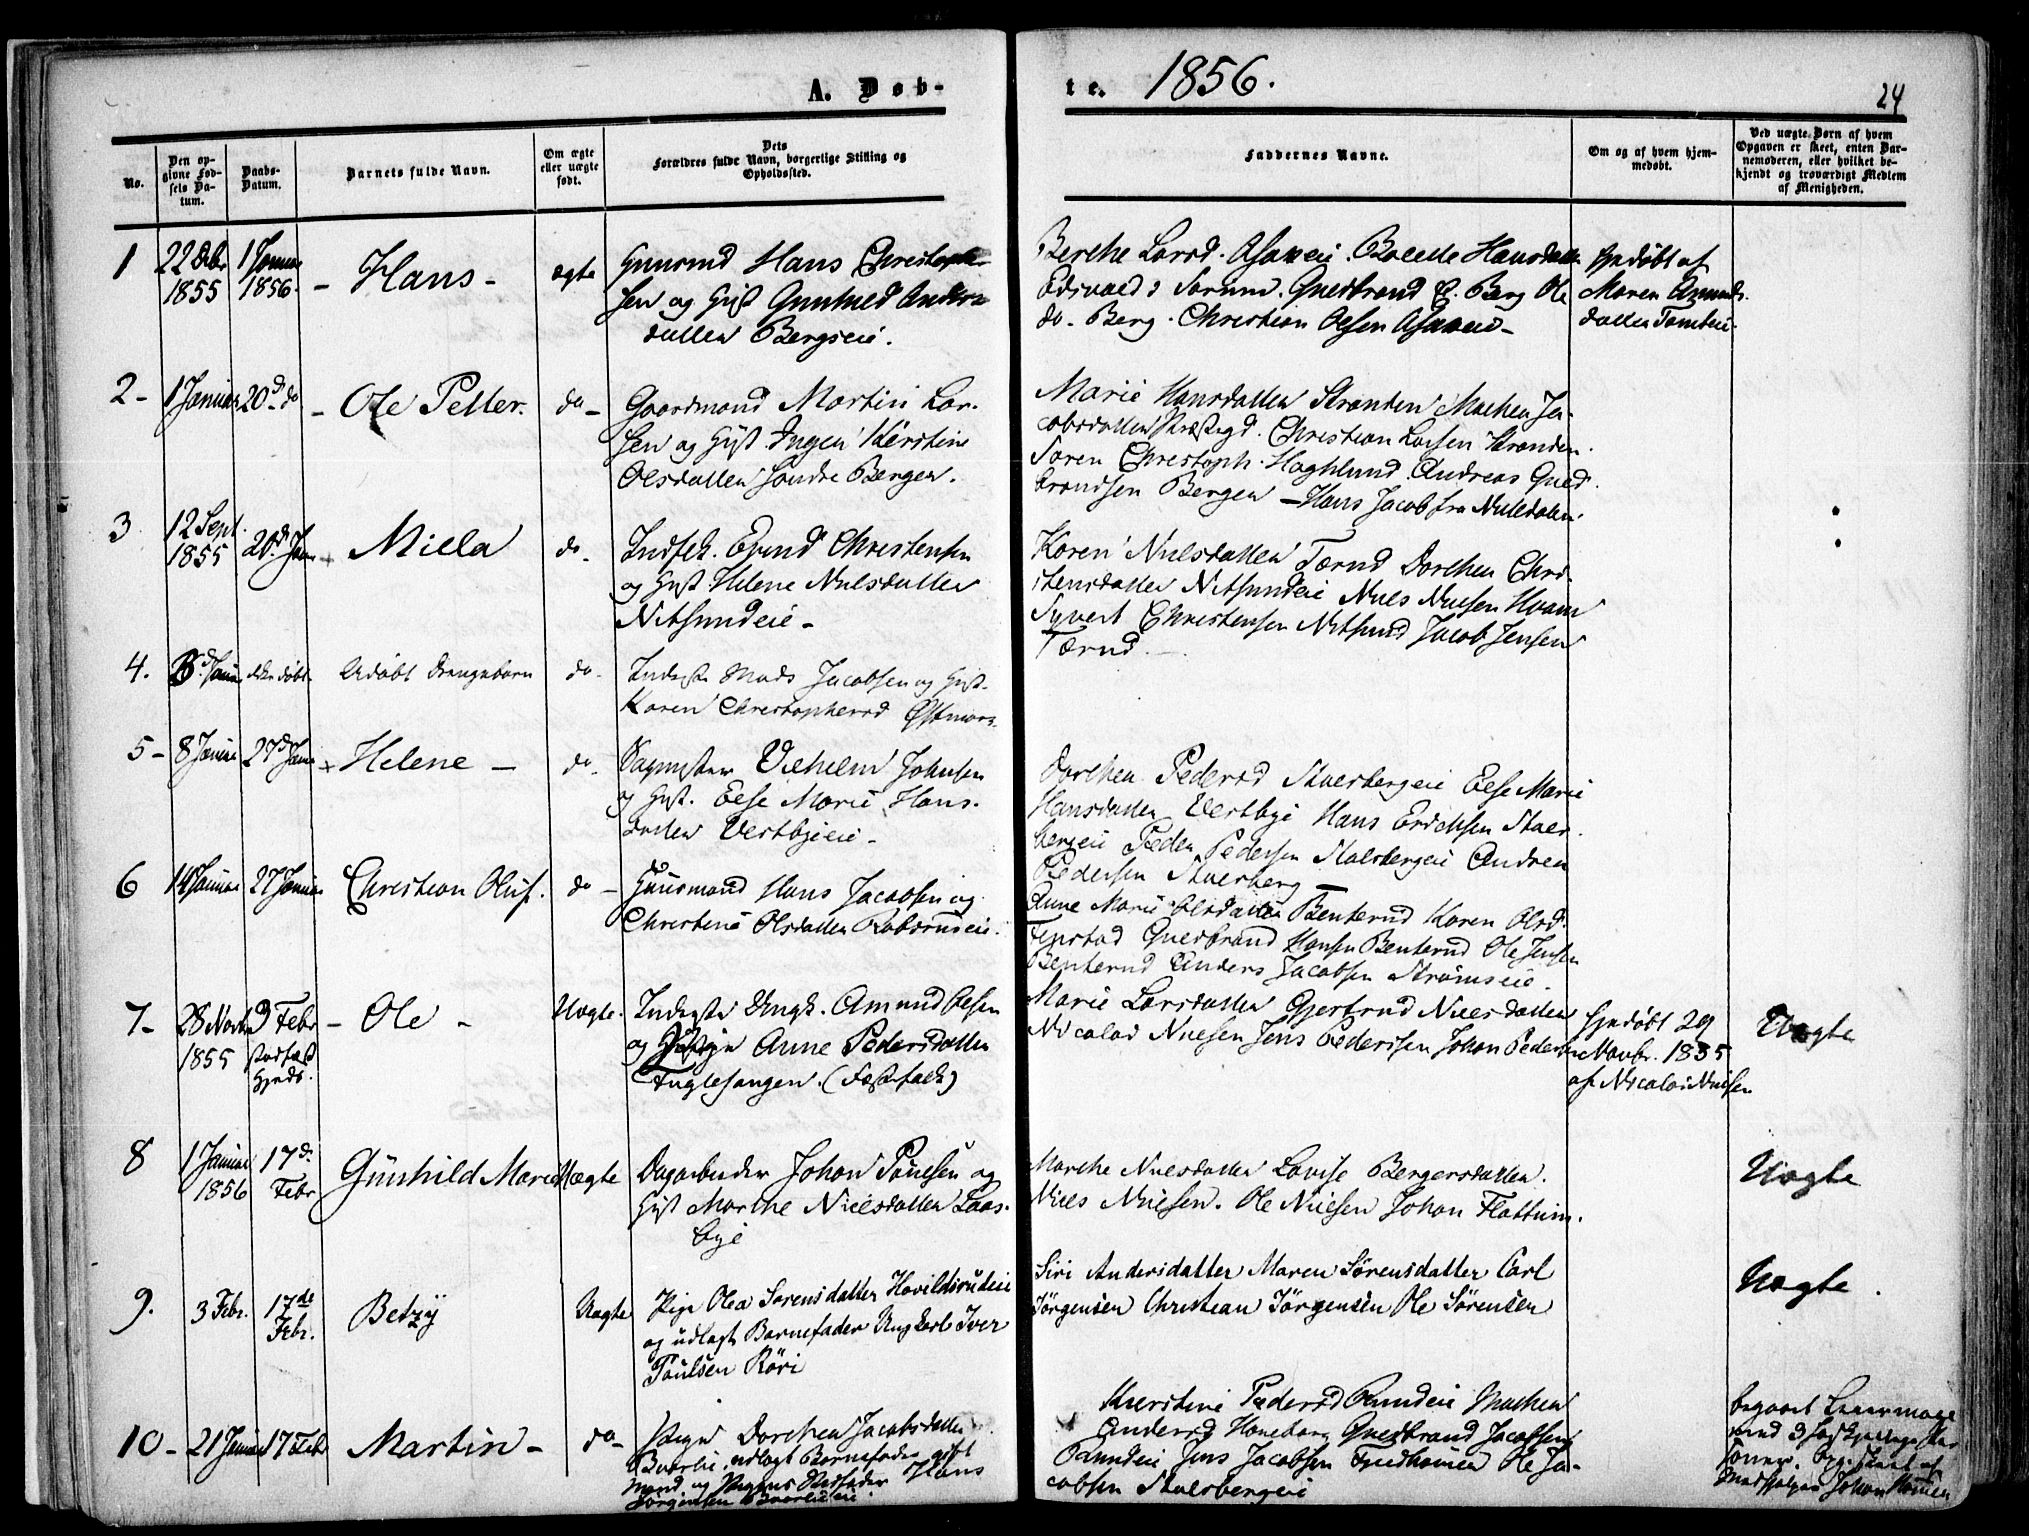 A. Døb-
te. 1856.
24
No.
Den opgivne Fødsels Datum.
Daabs-Datum.
Barnets fulde Navn.
Om ægte eller uægte født.
Dets Forældres fulde Navn, borgerlige Stilling og Opholdssted.
Faddernes Navne.
Om og af hvem hjemmedøbt.
Ved uægte Børn af hvem Opgaven er skeet, enten Barnemoderen, eller hvilket bekjendt og troværdigt Medlem af Menigheden.
1 22 Debr 1855 1 Januar 1856. - Hans - ægte
Huusmd Hans Christoph-
sen og Hust Gunhild Anders
datter Bergseie.
Berthe Larsd. Boletle Hansdatter
Gulbrand Berg Ole
do. Berg. Christian Olsen
Hjdøbt af
Maren Amunds-
datter
2 - 1 Januar 20d do - Ole Petter. do -
Gaardmand Martin Lar-
sen og Hust. Ingen Kirstine
Olsdatter Søndre Bergen.
Marie Hansdatter Stranden Mathea Ja-
cobsdatter Christian Larsen Stranden.
Søren Christoph. Haghlund Andreas Guld-
brandsen Bergen - Hans Jacob fra
3 12 Sept. 1855 20d Jan Milla do.
Indst. Christensen
og Hust. Helene Nilsdatter
Nitsundeie -
Karen Nilsdatter Tærud Dorthea Chri-
stensdatter Nitsundeie Niels Nielsen Hvam
Syvert Christensen Nitsund Jacob Jensen
Tærud.
4. Januar ikke døbt. Udøbt Drengebarn do.
Inderste Mads Jacobsen og Hust.
Karen Christophersd
5 - 8 Januar 27d Janu Helene - do.
Vilhelm Johnsen
og Hust. Else Marie Hans-
datter Vestbyeie -
Dorthea Pedersd Stulsbergeie Else Marie
Hansdatter Vestbye Hans Erichsen Stuls-
bergeie Peder Pedersen Stulsbergeie Andrea
Pedersen Stulsberg -
6 14 Januar 27 Januar Christian Oluf. do -
Huusmand Hans Jacobsen og
Christine Olsdatter
Anne Marie Olsdatter Benterud Karen Olsd.
Fjnstad Guldbrand Hansen Benterud Ole Jensen
Benterud Anders Jacobsen Strømseie.
7 - 28 Novbr 1855 3 Febr - Ole - Uægte.
Inderste Ungk. Amund Olsen
og Pige Anne Pedersdatter
Fuglesangen.
Marie Larsdatter Gjertrud Nielsdatter
Nicolai Nielsen Jens Pedersen Johan Pedersen
Hjdøbt 29
Novbr. 1855
af Nicolai Nielsen
Uægte
8 1 Januar 1856 17d. Febr Gunhild Marie Uægte
Dagarbeider Johan Poulsen og
Hust Marthe Nielsdatter Laas-
bye
Marthe Nilsdatter Lovise Bergersdatter.
Niels Nielsen. Ole Nielsen Johan Flattum.
Uægte
9. 3 Febr. 17de Febr. Betzÿ Uægte
Pige Olea Sørensdatter Hovildsrudeie
og udlagt Barnefader Ungkarl Iver
Poulsen Röri
Siri Andersdatter Maren Sörensdatter Carl
Jörgensen Christian Jörgensen Ole Sörensen
Uægte.
10 - 21 Januar 17 Febr Martin - do -
Pige Dorthea Jacobsdatter
udlagt Barnefader gift
Mand Hans
Jörgensen
Kierstine Pedersd Mathea
Andersd Guldbrand Jacobsen
Jens Jacobsen Ole Ja-
cobsen Stulsbergeie
begaaet Leiermaal
Johan